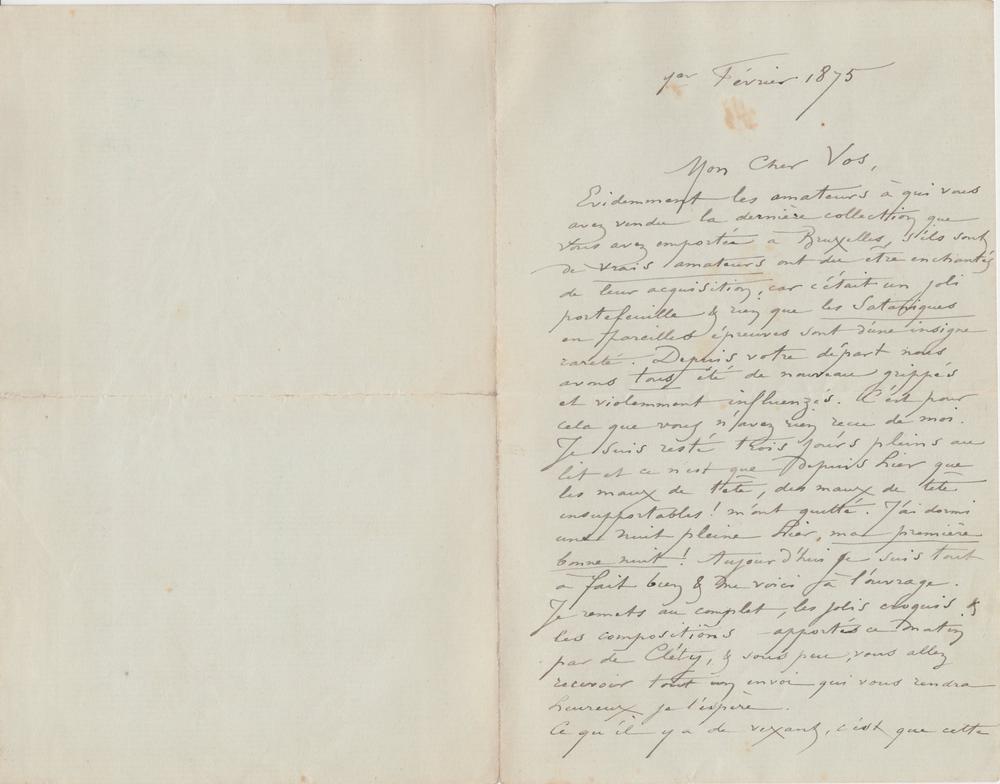 1er Février 1875
Mon Cher Vos,
Evidemment les amateurs à qui vous
avez vendu la dernière collection que
vous avez emportée à Bruxelles, s'ils sont
de vrais amateurs ont du être enchantés
de leur acquisition, car c'était un joli
portefeuille & rien que les Sataniques
en pareilles épreuves sont d'une insigne
rareté. Depuis votre départ nous
avons tous été de nouveau grippés
et violemment influenzés. C'est pour
cela que vous n'avez rien recu de moi.
Je suis resté trois jours pleins au
lit et ce n'est que depuis hier que
les maux de tête, des maux de tête
insupportables! m'ont quitté. J'ai dormi
une nuit pleine hier, ma première
bonne nuit! Aujourd'hui je suis tout
à fait bien & me voici à l'ouvrage.
Je remets au complet, les jolis croquis &
les compositions apportés ce matin
par de Cléty, & sous peu, vous allez
recevoir tout un envoi qui vous rendra
heureux je l'espère.
Ce qu'il y a de vexant, c'est que cette